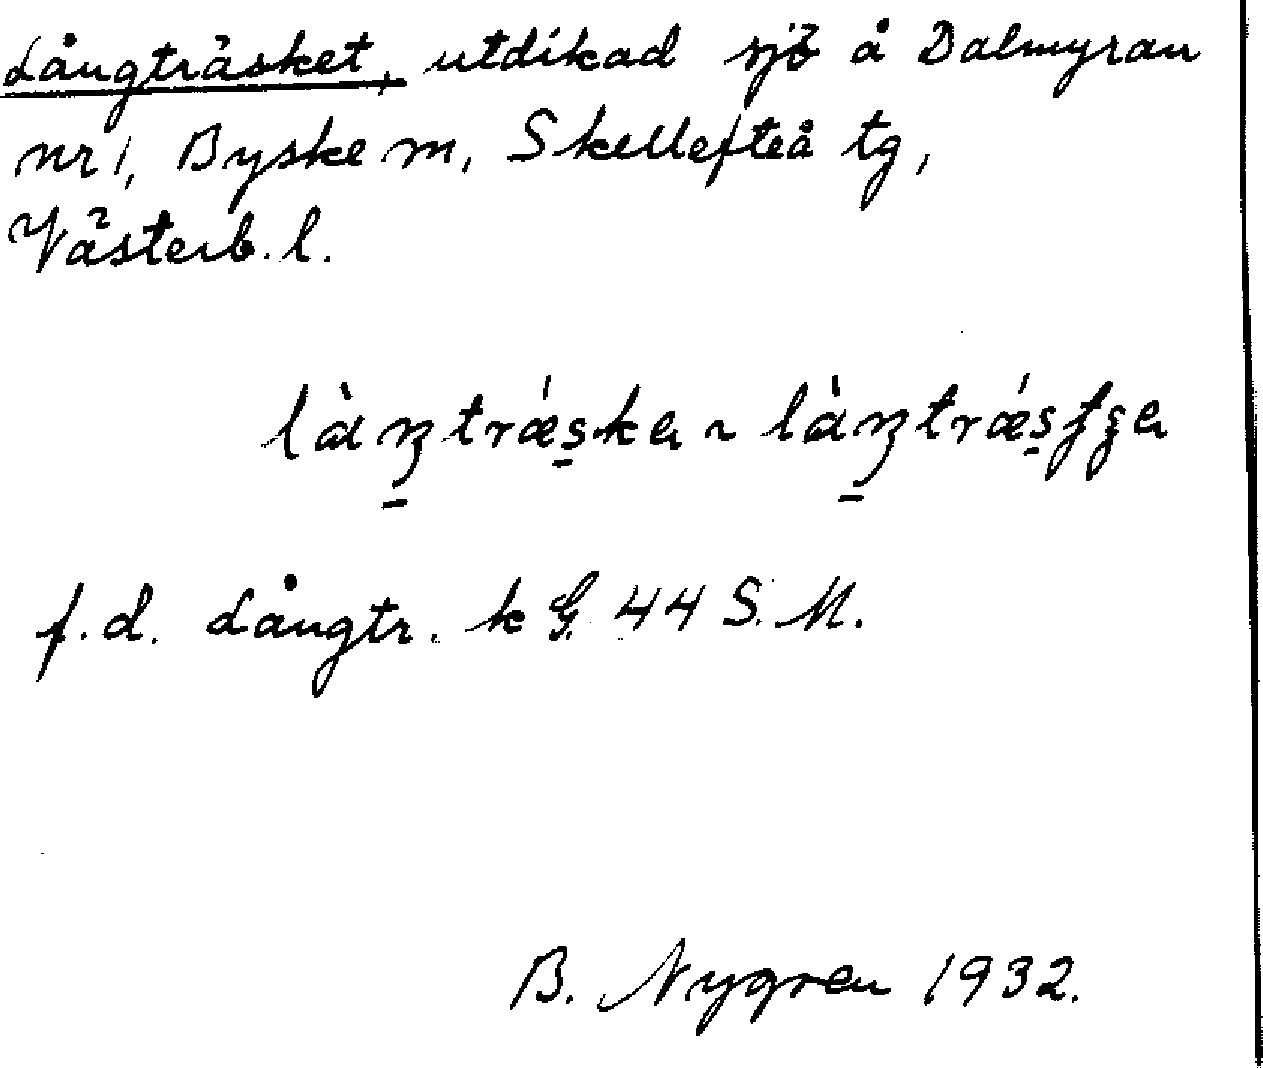 Långträsket, utdikad sjö å Dalmyran
nr 1, Byske m, Skellefteå tg,
Västerb. l.
f. d. Långtr. k G. 44 S. M.
B. Nygren 1932.